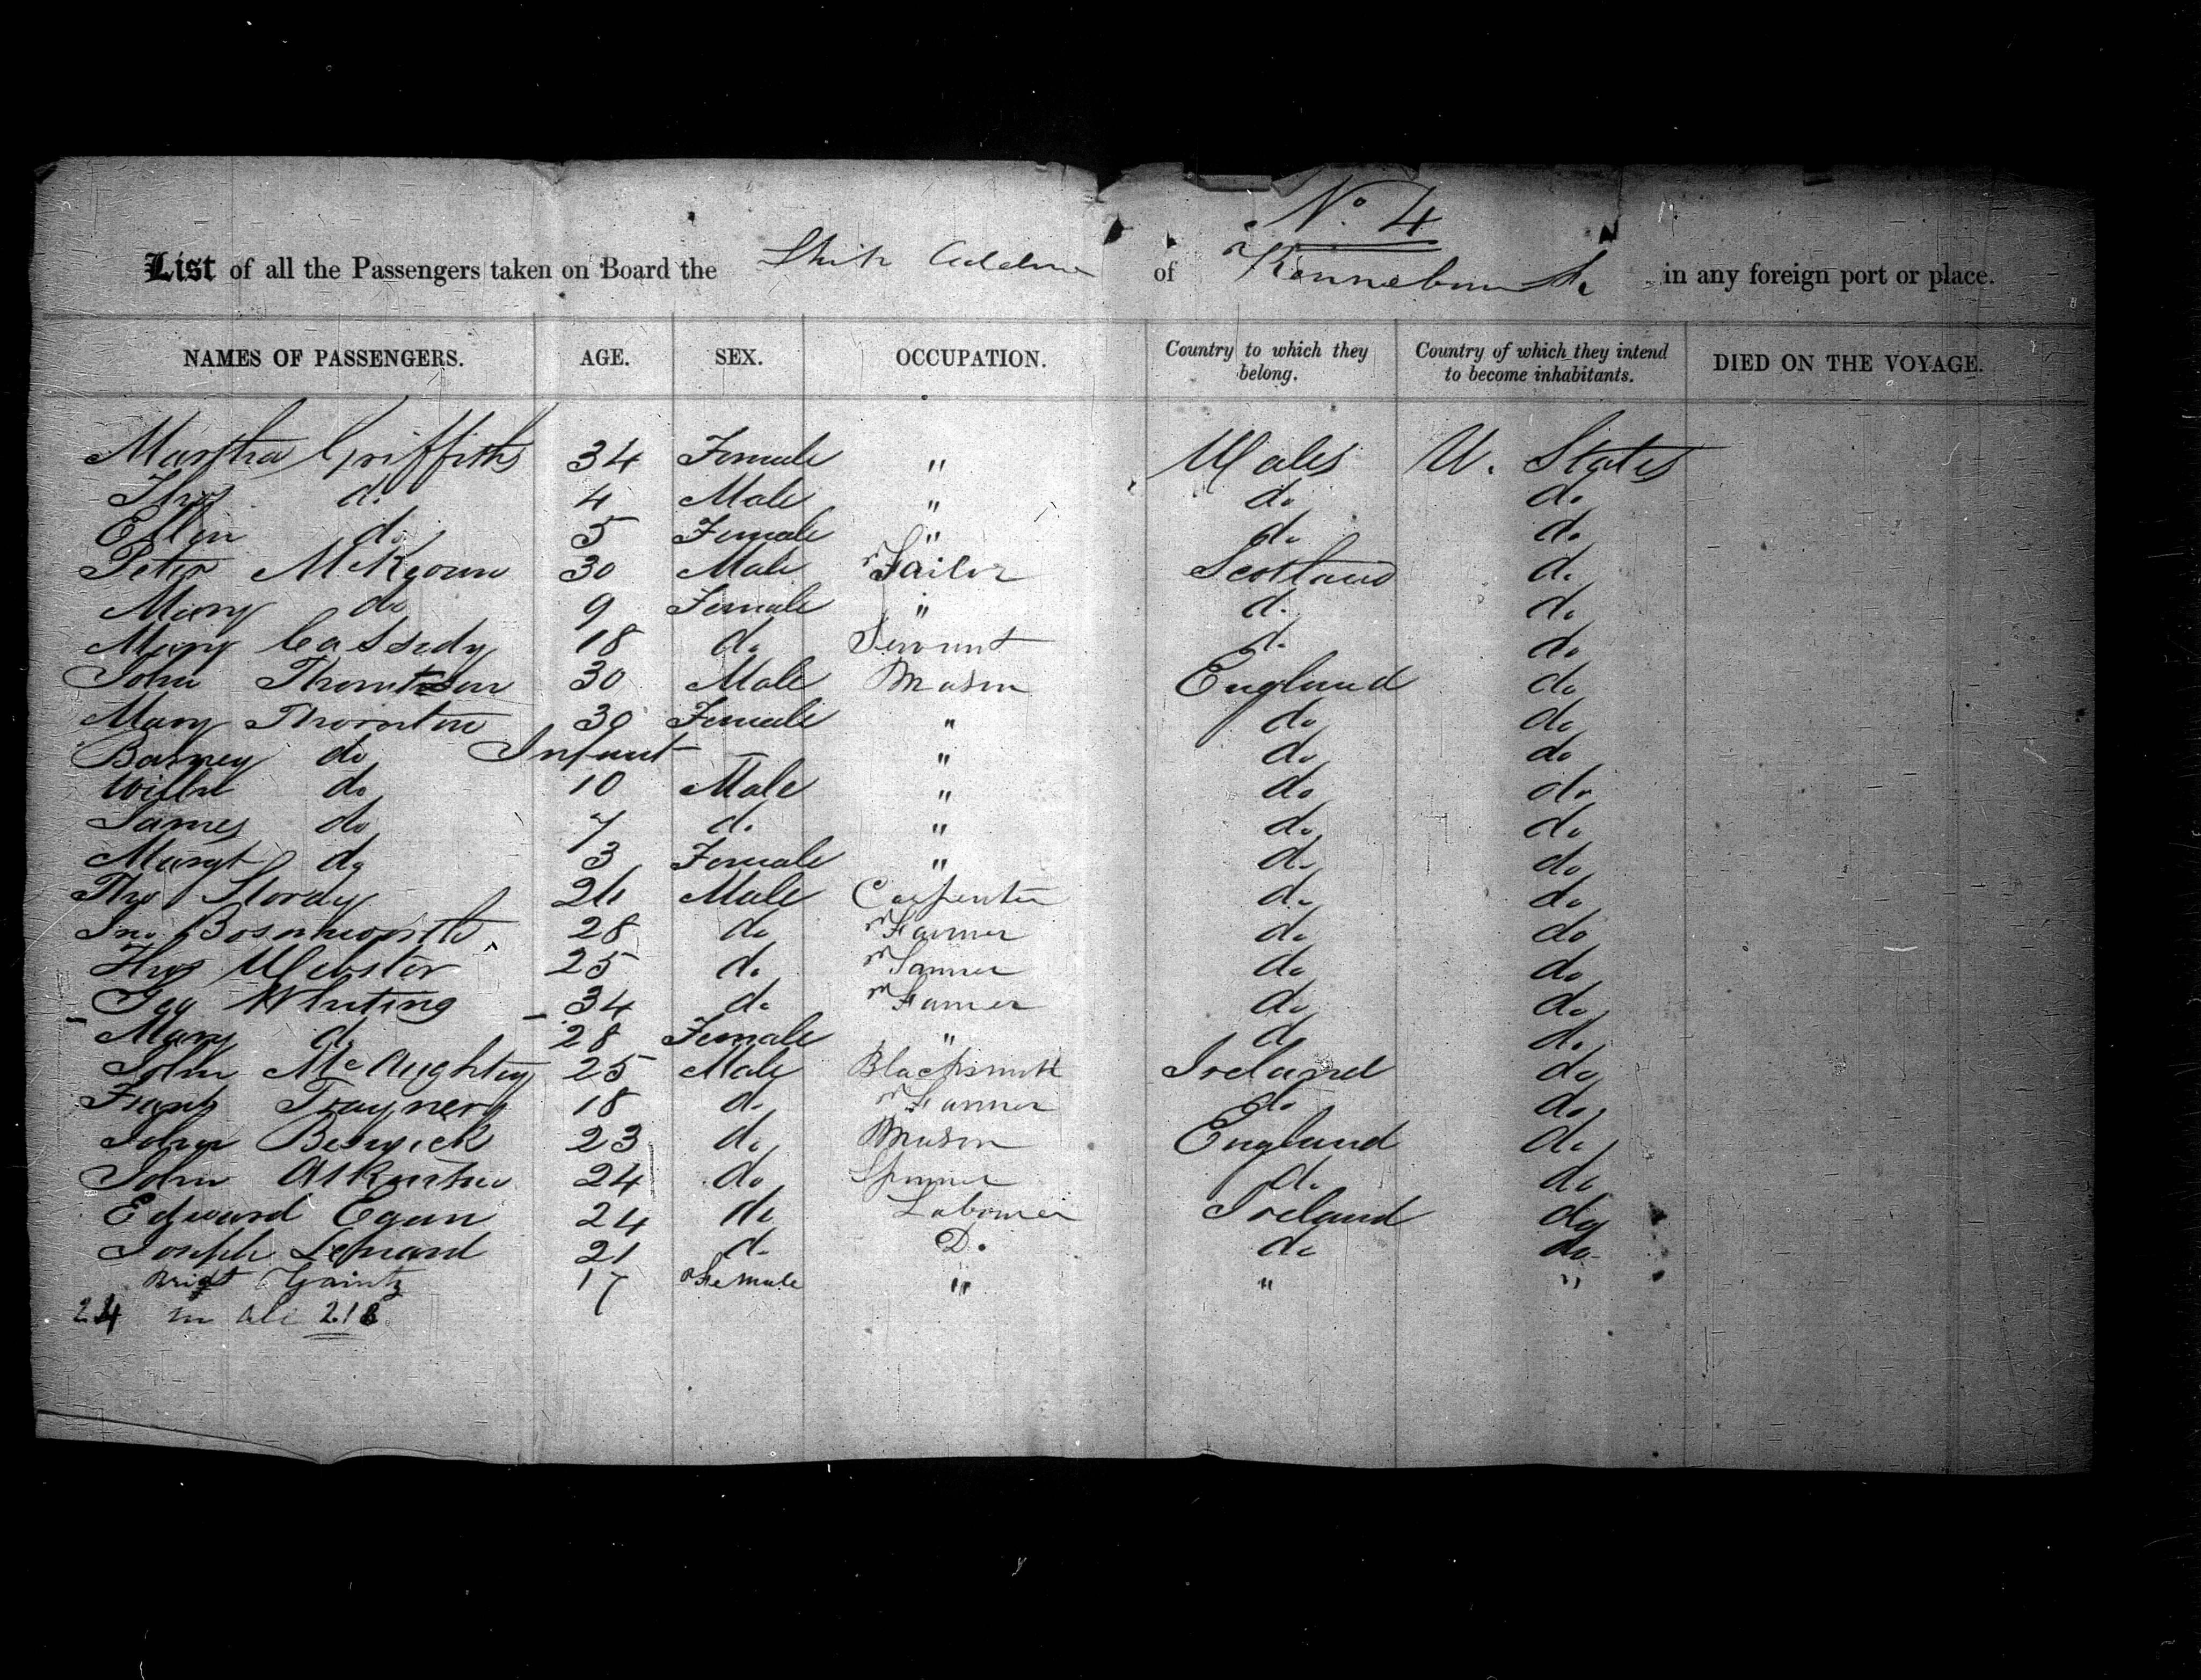 No. 4
List of all the Passengers taken on Board the Ship of Kennebunk in any foreign port or place.
NAMES OF PASSENGERS. AGE. SEX. OCCUPATION. Country to which they belong. Country of which they intend to become inhabitants. DIED ON THE VOYAGE.
Martha Griffiths 34 Female " Wales U. States
Thos do 4 Male " do do
Ellen do 5 Female " do do
Peter McKeown 30 Male Tailor Scotland do
Mary do 9 Female " do do
Mary Cassedy 18 do Servant do do
John 30 Male Mason England do
Mary Thornton 30 Female " do do
Barney do Infant — " do do
Willm do 10 Male " do do
James do 7 do " do do
Margt do 3 Female " do do
Thos Stordy Male Carpenter do do
Jno Bosomworth 28 do Farmer do do
Webster 25 do do do
Geo Whiting 34 do Farmer do do
Mary do 28 Female " do do
John McAughtry 25 Male Blacksmith Ireland do
Traynery 18 do Farmer do do
John Beswick 23 do Mason England do
John 24 do Spinner do do
Edward Egan 24 do Labourer Ireland do
Joseph Lenard 21 do Do do do
Bridt 17 Female " " "
24 in all 218